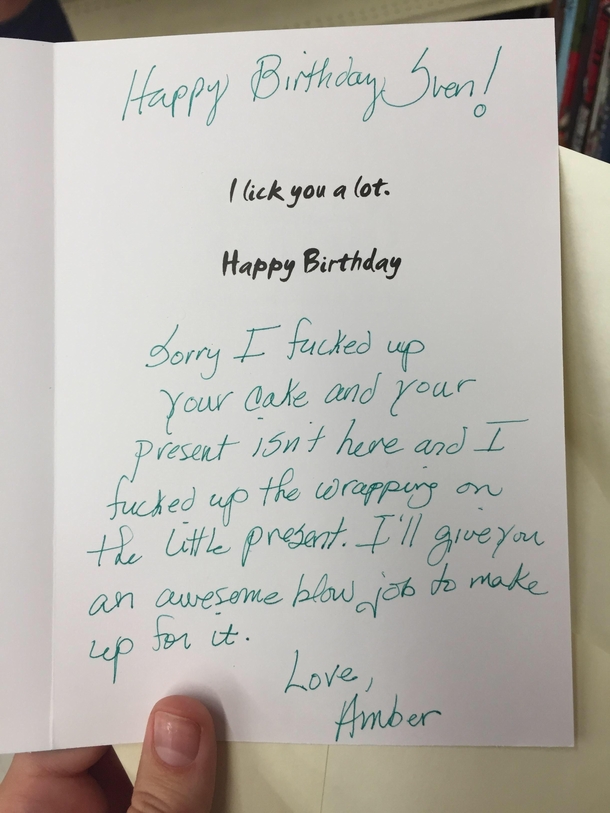 Happy Birthday Sven!
I lick you a lot.
Happy Birthday
Sorry I fucked up
your cake and your
present isn't here and I
fucked up the wrapping on
the little present. I'll give you
an awesome blow job to make
up for it.
Love,
Amber